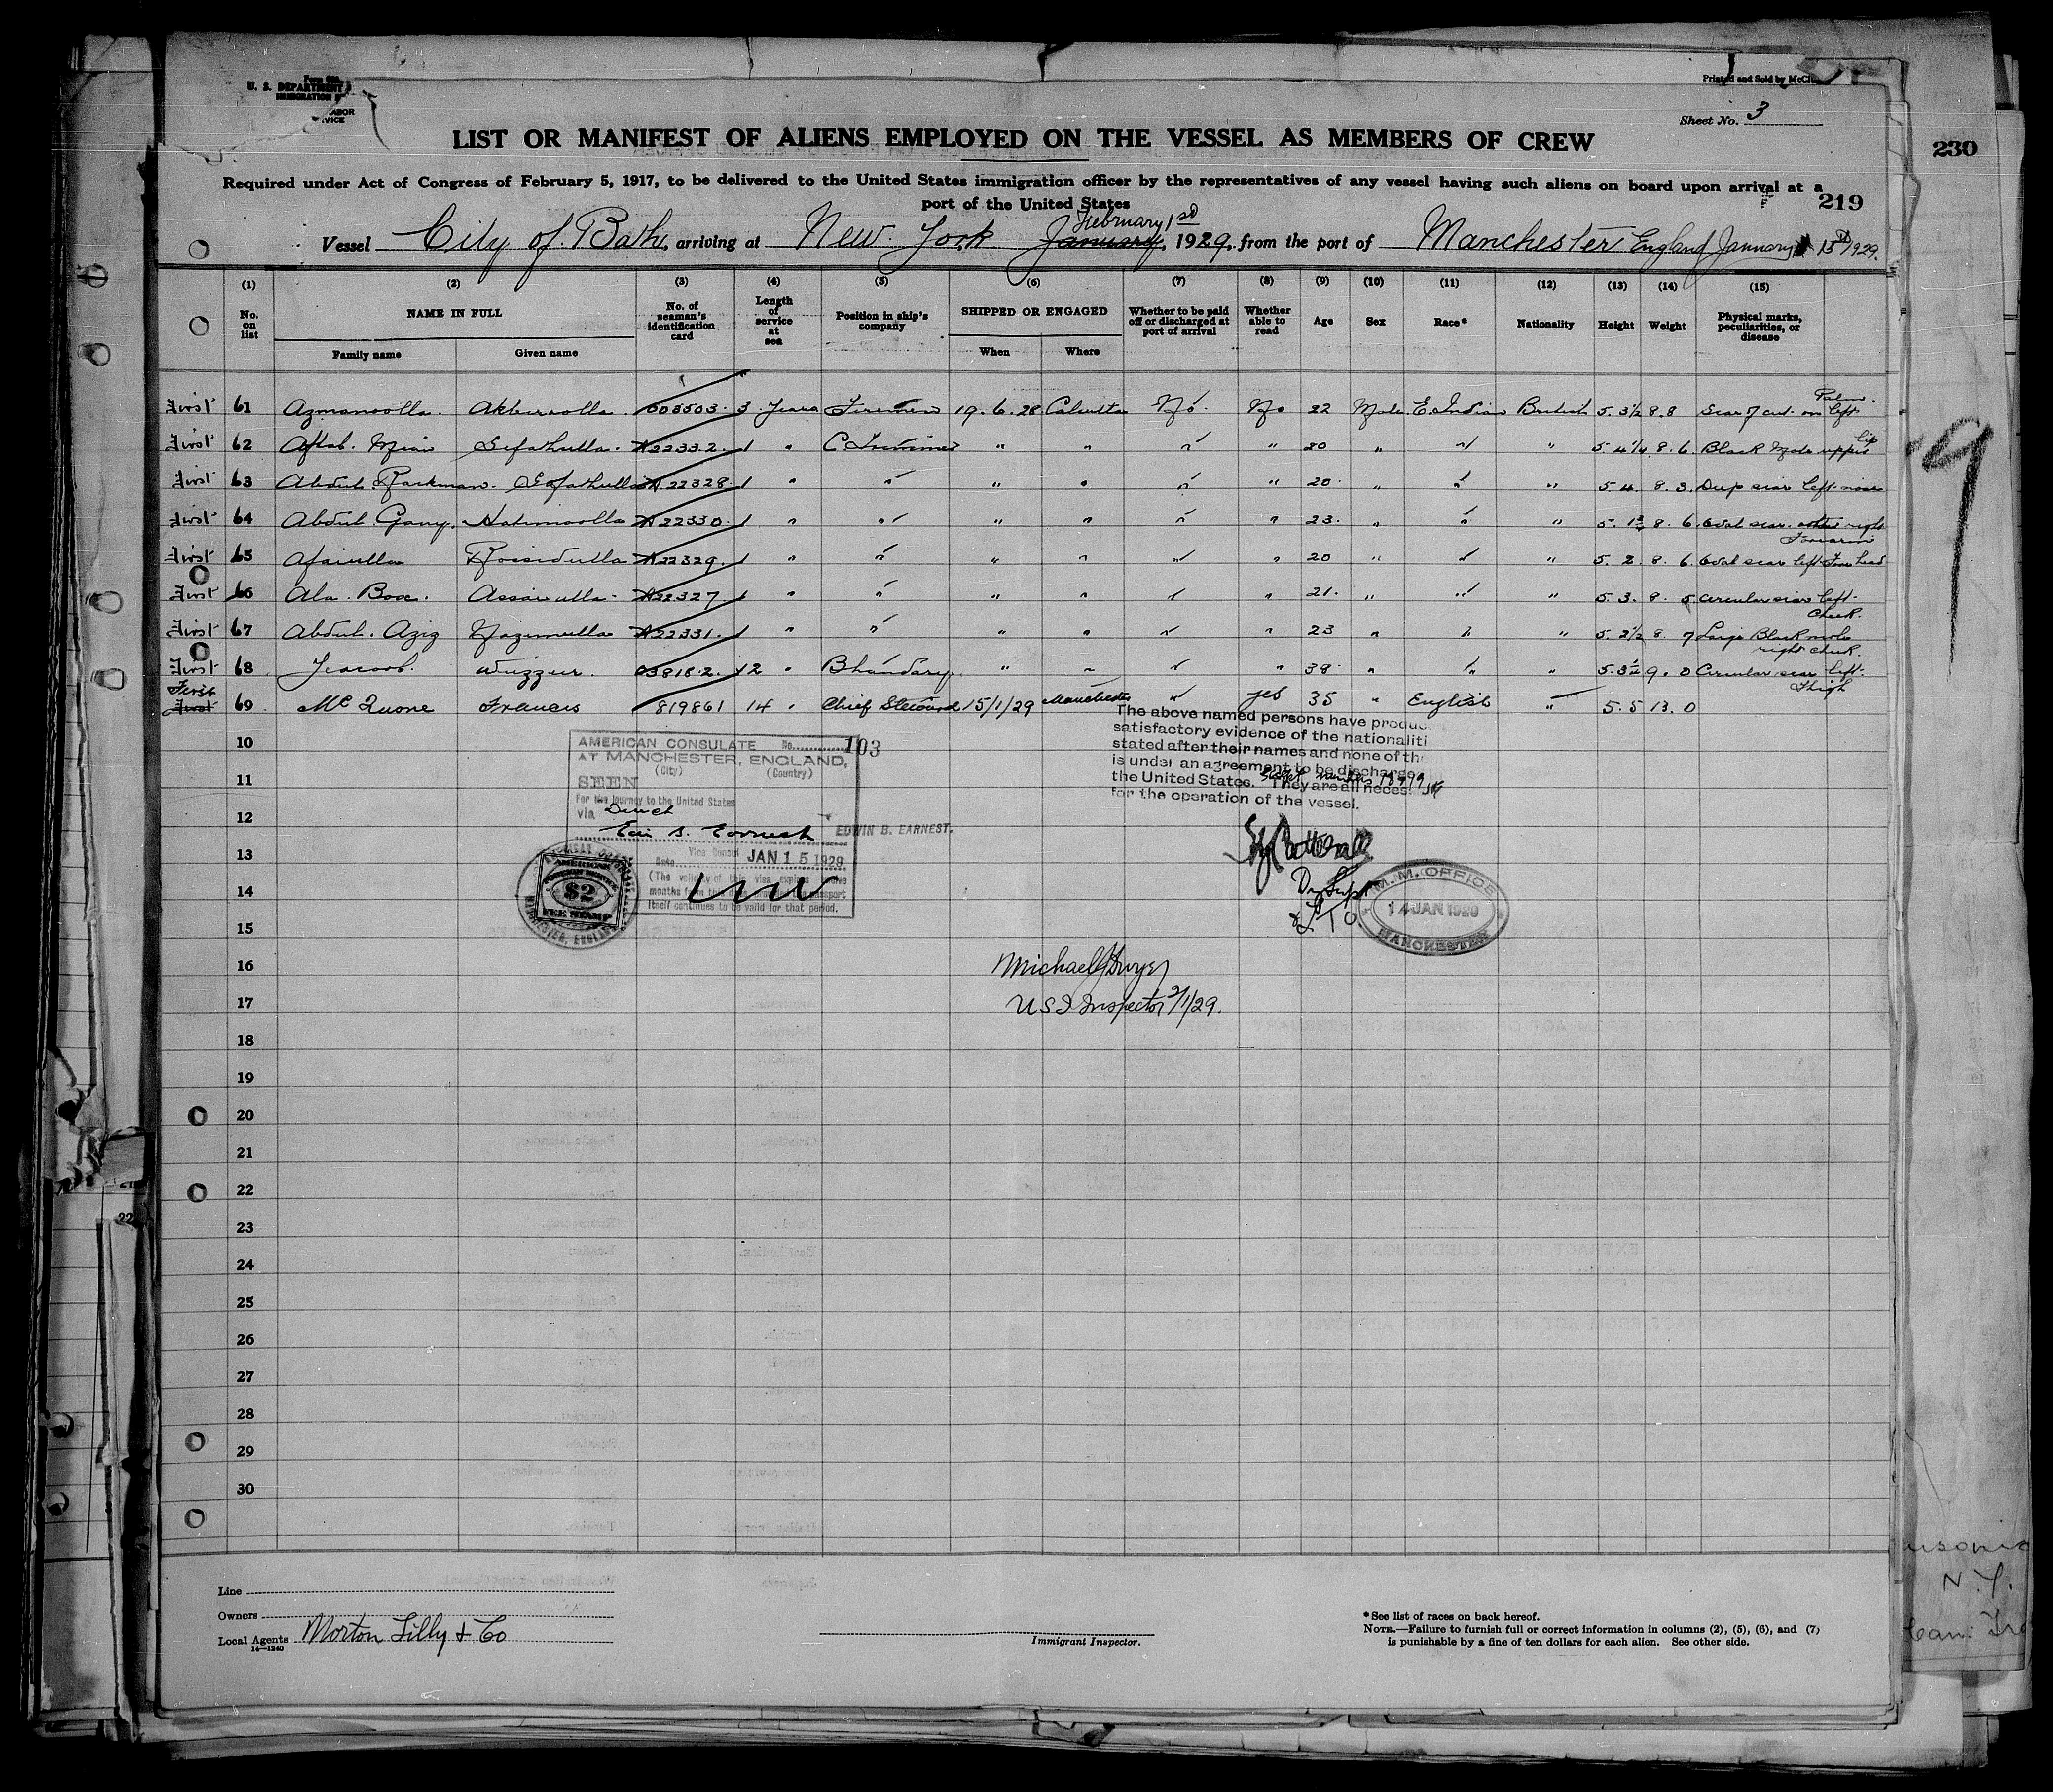 Form 680
U. S. DEPARTMENT
IMMIGRATION
LABOR
VICE
Printed and Sold by McCl
Sheet No. 3
LIST OR MANIFEST OF ALIENS EMPLOYED ON THE VESSEL AS MEMBERS OF CREW
230
Required under Act of Congress of February 5, 1917, to be delivered to the United States immigration officer by the representatives of any vessel having such aliens on board upon arrival at a
port of the United States
219
February 1st
Vessel City of Bath, arriving at New York January, 1929, from the port of Manchester England January 15th 1929.
(1) (2) (3) (4) (5) (6) (7) (8) (9) (10) (11) (12) (13) (14) (15)
No. on list NAME IN FULL No. of seaman's identification card Length of service at sea Position in ship's company SHIPPED OR ENGAGED Whether to be paid off or discharged at port of arrival Whether able to read Age Sex Race* Nationality Height Weight Physical marks, peculiarities, or disease
Family name Given name When Where
First 61 Azmanoolla. Akberoolla. 008503. 3 Years Firemen 19. 6. 28 Calcutta No. No 22 Male E. Indian British 5. 3½ 8. 8 Scar of cut on left Palm.
First 62 Aftab. Mian Sefathulla. A22332. 1 " C Trimmer " " " " 20 " " " 5 4¼ 8. 6. Black Mole upper lip
First 63 Abdul Rackman. A22328. 1 " " " " " " 20 " " " 5 4. 8. 3. Deep scar left
First 64 Abdul Gany. Hatimoolla A22330. 1 " " " " " " 23. " " " 5. 8. 6. Oval scar right Forearm
First 65 Afaiulla Rossidulla A22329. 1 " " " " " " 20 " " " 5. 2. 8. 6. Oval scar left Fore head
First 66 Ala. Box. Assanulla A22327. 1 " " " " " " 21. " " " 5. 3. 8. 5 Circular scar left Cheek.
First 67 Abdul. Aziz Nazimulla A22331. 1 " " " " " " 23 " " " 5. 2½ 8. 7 Large Black mole right cheek.
First 68 Yeacoob. Wuzzur. 03818.2. 12 " Bhandary. " " " " 38. " " " 5. 3½ 9. 0 Circular scar left Thigh
First 69 Mc Quone Francis 819861 14 " Chief Steward 15/1/29 Manchester " yes 35 " English " 5. 5 13. 0
The above named persons have produc
satisfactory evidence of the nationaliti
stated after their names and none of th
is under an agreement to be discharge
the United States. They are all neces
for the operation of the vessel.
10
11
12
13
14
15
16
17
18
19
20
21
22
23
24
25
26
27
28
29
30
AMERICAN CONSULATE No. 103
AT MANCHESTER, ENGLAND,
(City) (Country)
SEEN
For the journey to the United States
via Direct
EDWIN B. EARNEST.
Vice Consul
Date JAN 15 1929
(The validity of this visa expires twelve
months from this date, provided the passport
itself continues to be valid for that period.
AMERICAN
FOREIGN SERVICE
$2
FEE STAMP
MANCHESTER, ENGLAND
M. M. OFFICE
14 JAN 1929
MANCHESTER
Michael J Dwyer
US I Inspector 2/1/29.
Line
Owners
Local Agents Morton Lilly & Co
14—1240
Immigrant Inspector.
* See list of races on back hereof.
NOTE.—Failure to furnish full or correct information in columns (2), (5), (6), and (7)
is punishable by a fine of ten dollars for each alien. See other side.
N. Y.